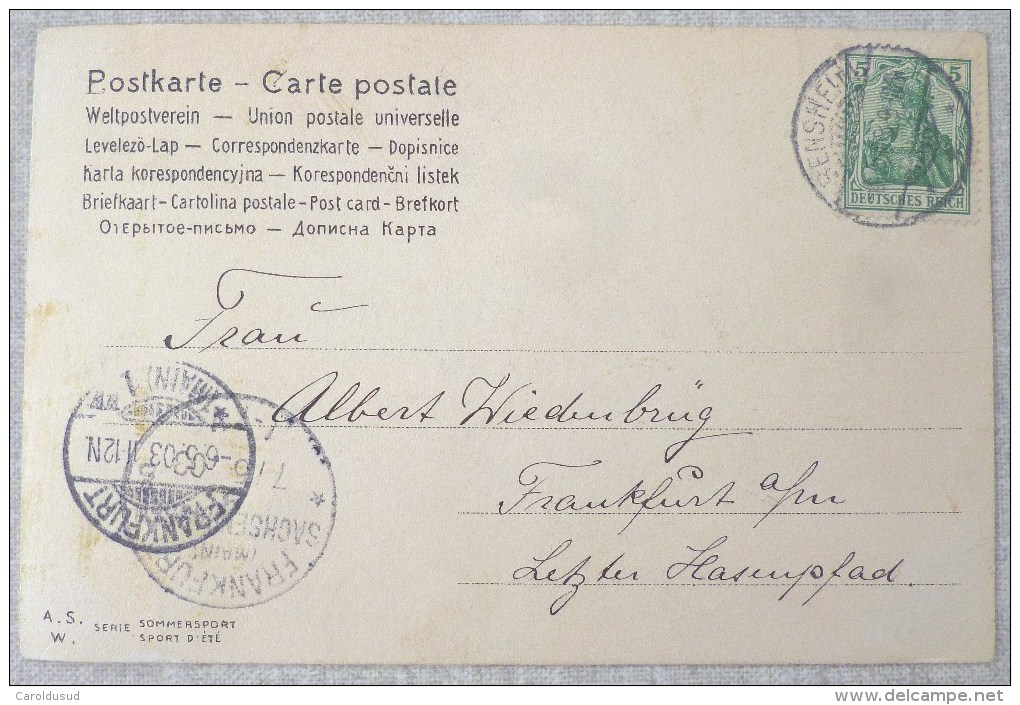 Postkarte – Carte postale
Weltpostverein — Union postale universelle
Levelező-Lap — Correspondenzkarte — Dopisnice
Karta korespondencyjna — Korespondenčni listek
Briefkaart – Cartolina postale – Post card – Brefkort
Открытое-письмо — Дописна Карта
5 5
DEUTSCHES REICH
BENSHEIM
Frau
Albert Wiedenbrüg
Frankfurt a/m
Letzter Hasenpfad.
(MAIN) 1
11-12N.
FRANKFURT
SACHSEN
(MAIN)
FRANKFURT
A. S.
W.
SERIE SOMMERSPORT
SPORT D'ÉTÉ
Caroldusud
www.delcampe.net